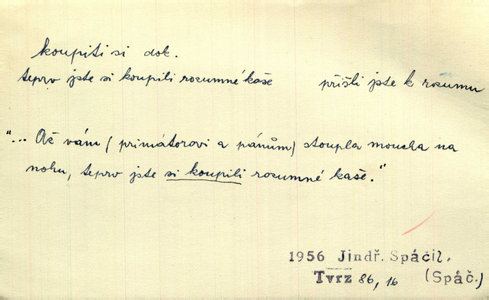 koupiti si dok.
teprv jste si koupili rozumné kaše přišli jste k rozumu
"... Až vám (primátorovi a pánům) stoupla moucha na
nohu, teprv jste si koupili rozumné kaše."
1956 Jindř. Spáčil,
Tvrz 86, 16 (Spáč.)